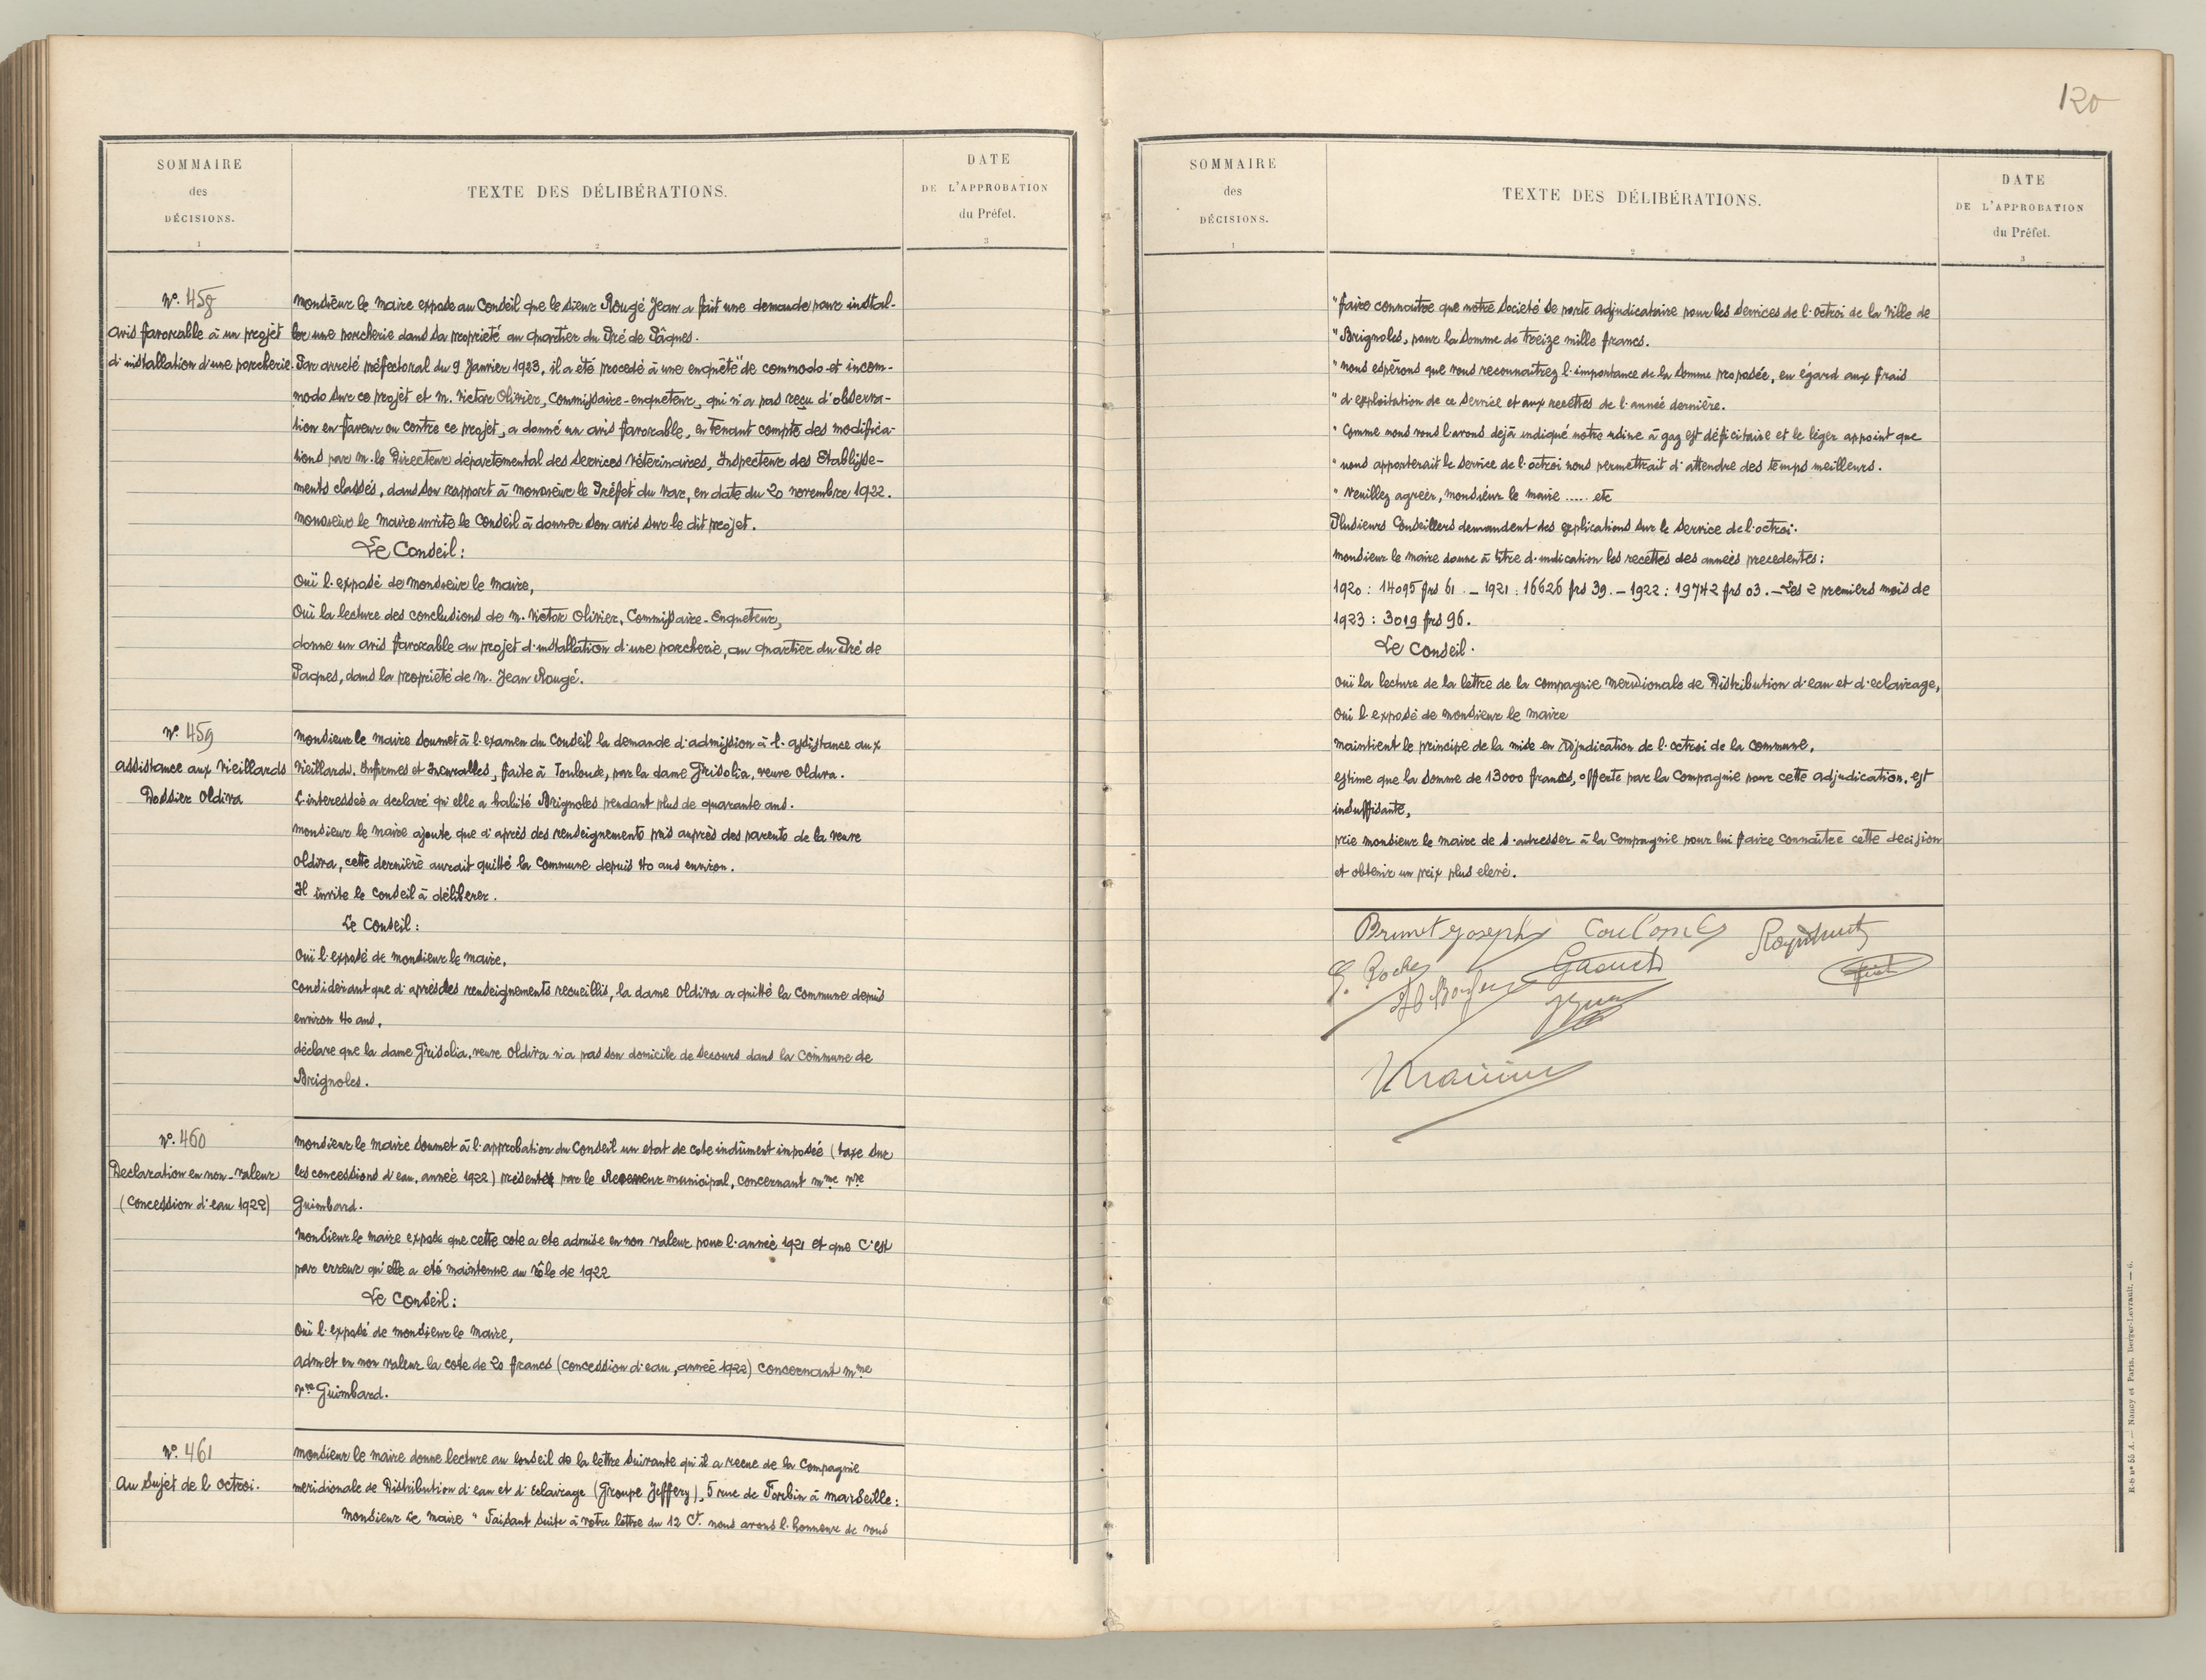 SOMMAIRE
des
DÉCISIONS.
1
TEXTE DES DÉLIBÉRATIONS.
2
DATE
DE L'APPROBATION
du Préfet.
3
N° 458
Avis favorable à un projet
d'installation d'une porcherie.
Monsieur le Maire expose au Conseil que le sieur Rougé Jean a fait une demande pour instal-
ler une porcherie dans sa propriété au quartier du Pré de Pâques.
Par arreté préfectoral du 9 Janvier 1923, il a été procedé à une enquête de commodo et incom-
modo sur ce projet et M. Victor Olivier, Commissaire-enqueteur, qui n'a pas reçu d'observa-
tion en faveur ou contre ce projet, a donné un avis favorable, en tenant compte des modifica-
tions par M. le Directeur départemental des Services Vétérinaires, Inspecteur des Etablisse-
ments classés, dans son rapport à Monsieur le Préfet du Var, en date du 20 novembre 1922.
Monsieur le Maire invite le Conseil à donner son avis sur le dit projet.
Le Conseil :
Ouï l'exposé de Monsieur le Maire,
Ouï la lecture des conclusions de M. Victor Olivier, Commissaire-Enqueteur,
donne un avis favorable au projet d'installation d'une porcherie, au quartier du Pré de
Paques, dans la propriété de M. Jean Rougé.
N° 459
Assistance aux Vieillards
Dossier Oldiva
Monsieur le Maire soumet à l'examen du Conseil la demande d'admission à l'assistance aux
Vieillards, Infirmes et Incurables, faite à Toulouse, par la dame Grisolia, veuve Oldiva.
L'interessée a declaré qu'elle a habité Brignoles pendant plus de quarante ans.
Monsieur le Maire ajoute que d'après des renseignements pris auprès des parents de la veuve
Oldiva, cette dernière aurait quitté la Commune depuis 40 ans environ.
Il invite le Conseil à délibérer.
Le Conseil :
Ouï l'exposé de Monsieur le Maire,
Considérant que d'après des renseignements recueillis, la dame Oldiva a quitté la Commune depuis
environ 40 ans,
déclare que la dame Grisolia, veuve Oldiva n'a pas son domicile de secours dans la Commune de
Brignoles.
N° 460
Declaration en non-valeur
(Concession d'eau 1922)
Monsieur le Maire soumet à l'approbation du Conseil un etat de cote indûment imposée (taxe sur
les concessions d'eau, année 1922) présenté par le Receveur municipal, concernant Mme Vve
Guimbard.
Monsieur le Maire expose que cette cote a ete admise en non valeur pour l'année 1921 et que c'est
par erreur qu'elle a eté maintenue au rôle de 1922
Le Conseil :
Ouï l'exposé de Monsieur le Maire,
Admet en non valeur la cote de 20 francs (concession d'eau, année 1922) concernant Mme
Vve Guimbard.
N° 461
Au Sujet de l'octroi.
Monsieur le Maire donne lecture au Conseil de la lettre suivante qu'il a recue de la Compagnie
meridionale de Distribution d'eau et d'Eclairage (Groupe Jeffery), 5 rue de Forbin à Marseille :
Monsieur le Maire " Faisant suite à votre lettre du 12 Ct. nous avons l'honneur de vous
120
SOMMAIRE
des
DÉCISIONS.
1
TEXTE DES DÉLIBÉRATIONS.
2
DATE
DE L'APPROBATION
du Préfet.
3
" faire connaitre que notre Société se porte adjudicataire pour les services de l'octroi de la Ville de
" Brignoles, pour la somme de treize mille francs.
" Nous espérons que vous reconnaitrez l'importance de la somme proposée, eu égard aux frais
" d'exploitation de ce service et aux recettes de l'année dernière.
" Comme nous vous l'avons dejà indiqué notre usine à gaz est déficitaire et le léger appoint que
" nous apporterait le service de l'octroi nous permettrait d'attendre des temps meilleurs.
" Veuillez agréer, Monsieur le Maire ..... etc
Plusieurs Conseillers demandent des explications sur le service de l'octroi.
Monsieur le Maire donne à titre d'indication les recettes des années precedentes :
1920 : 14095 frs 61. – 1921 : 16626 frs 39. – 1922 : 19742 frs 03. – Les 2 premiers mois de
1923 : 3019 frs 96.
Le Conseil.
Ouï la lecture de la lettre de la Compagnie Meridionale de Distribution d'eau et d'eclairage,
Ouï l'exposé de Monsieur le Maire
Maintient le principe de la mise en Adjudication de l'octroi de la Commune,
estime que la somme de 13000 francs, offerte par la Compagnie pour cette adjudication, est
insuffisante,
prie Monsieur le Maire de s'adresser à la Compagnie pour lui faire connaitre cette decision
et obtenir un prix plus elevé.
Brunet Joseph Coulomb
G. Roche
R-S n° 55 A. — Nancy et Paris, Berger-Levrault. — 6.